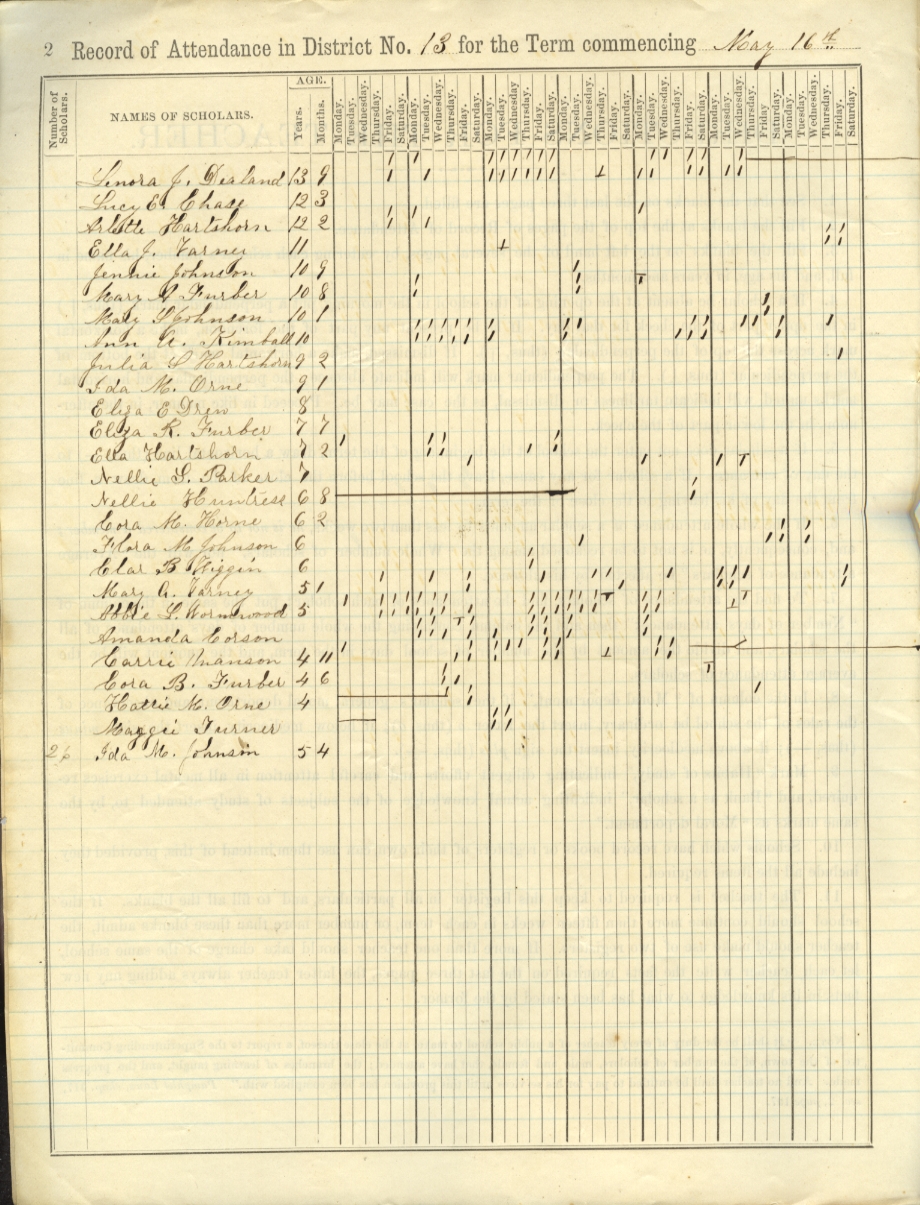 2 Record of Attendance in District No. 13 for the Term commencing May 16th
Number of Scholars. NAMES OF SCHOLARS. AGE. Years. Months. Monday. Tuesday. Wednesday. Thursday. Friday. Saturday. Monday. Tuesday. Wednesday. Thursday. Friday. Saturday. Monday. Tuesday. Wednesday Thursday. Friday. Saturday. Monday. Tuesday. Wednesday. Thursday. Friday. Saturday. Monday. Tuesday. Wednesday. Thursday. Friday. Saturday. Monday. Tuesday. Wednesday. Thursday. Friday Saturday. Monday. Tuesday. Wednesday. Thursday. Friday. Saturday.
Lenora J. Dealand 13 9
Lucy E. Chase 12 3
Arlette Hartshorn 12 2
Ella J. Varney 11
Jennie Johnson 10 9
Mary A Furber 10 8
Mary S Johnson 10 1
Ann A. Kimball 10
Julia S Hartshorn 9 2
Ida M. Orne 9 1
Eliza E Drew 8
Eliza R. Furber 7 7
Ella Hartshorn 7 2
Nellie G. Parker 7
Nellie Huntress 6 8
Cora M. Horne 6 2
Flora M Johnson 6
Clar B Higgin 6
Mary A. Varney 5 1
Abbie L. Wormwood 5
Amanda Corson
Carrie Swanson 4 11
Cora B. Furber 4 6
Hattie M. Orne 4
Maggie Turner
26 Ida M. Johnsin 5 4